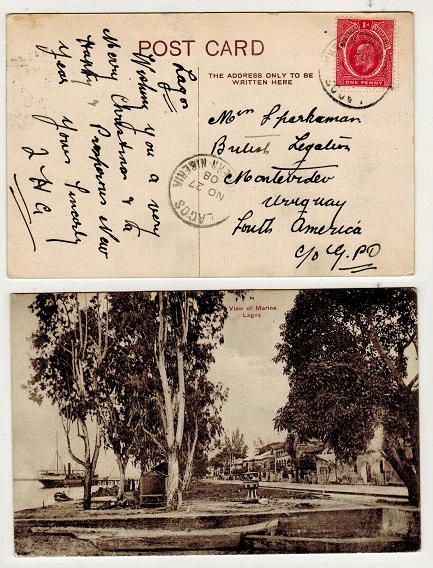 POST CARD
THE ADDRESS ONLY TO BE
WRITTEN HERE
Lagos
Wishing you a very
Merry Christmas & a
Happy & Prosperous New
Year
Yours Sincerely
ONE PENNY
LAGOS
NO 27
08
Sparkeman
British Legation
Montevideo
Uruguay
South America
c/o G.P.O
View of Marina
Lagos